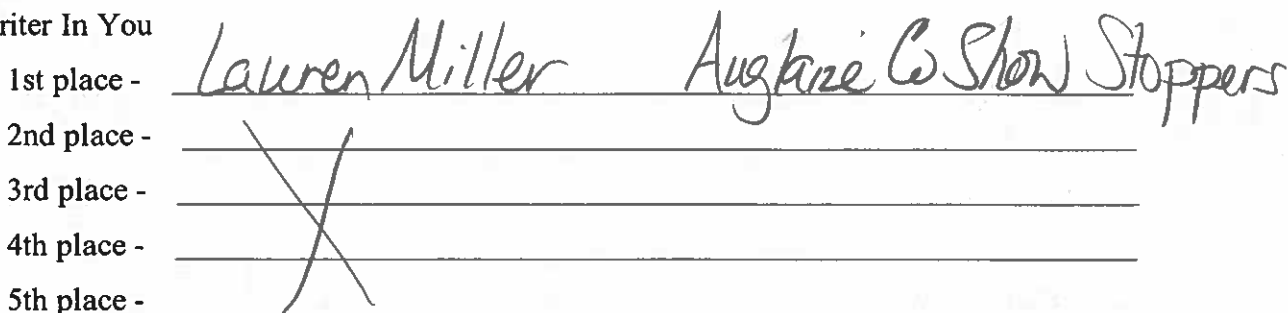 riter In You
1st place - Lauren Miller Auglaize Co Show Stoppers
2nd place -
3rd place -
4th place -
5th place -